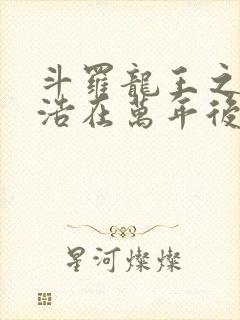 斗羅龍王之
浩在萬年後
星河燦燦